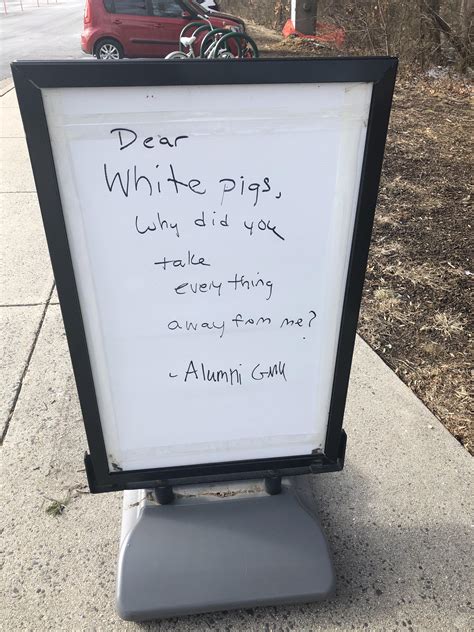 Dear
White pigs,
Why did you
take
everything
away from me?
- Alumni GMU